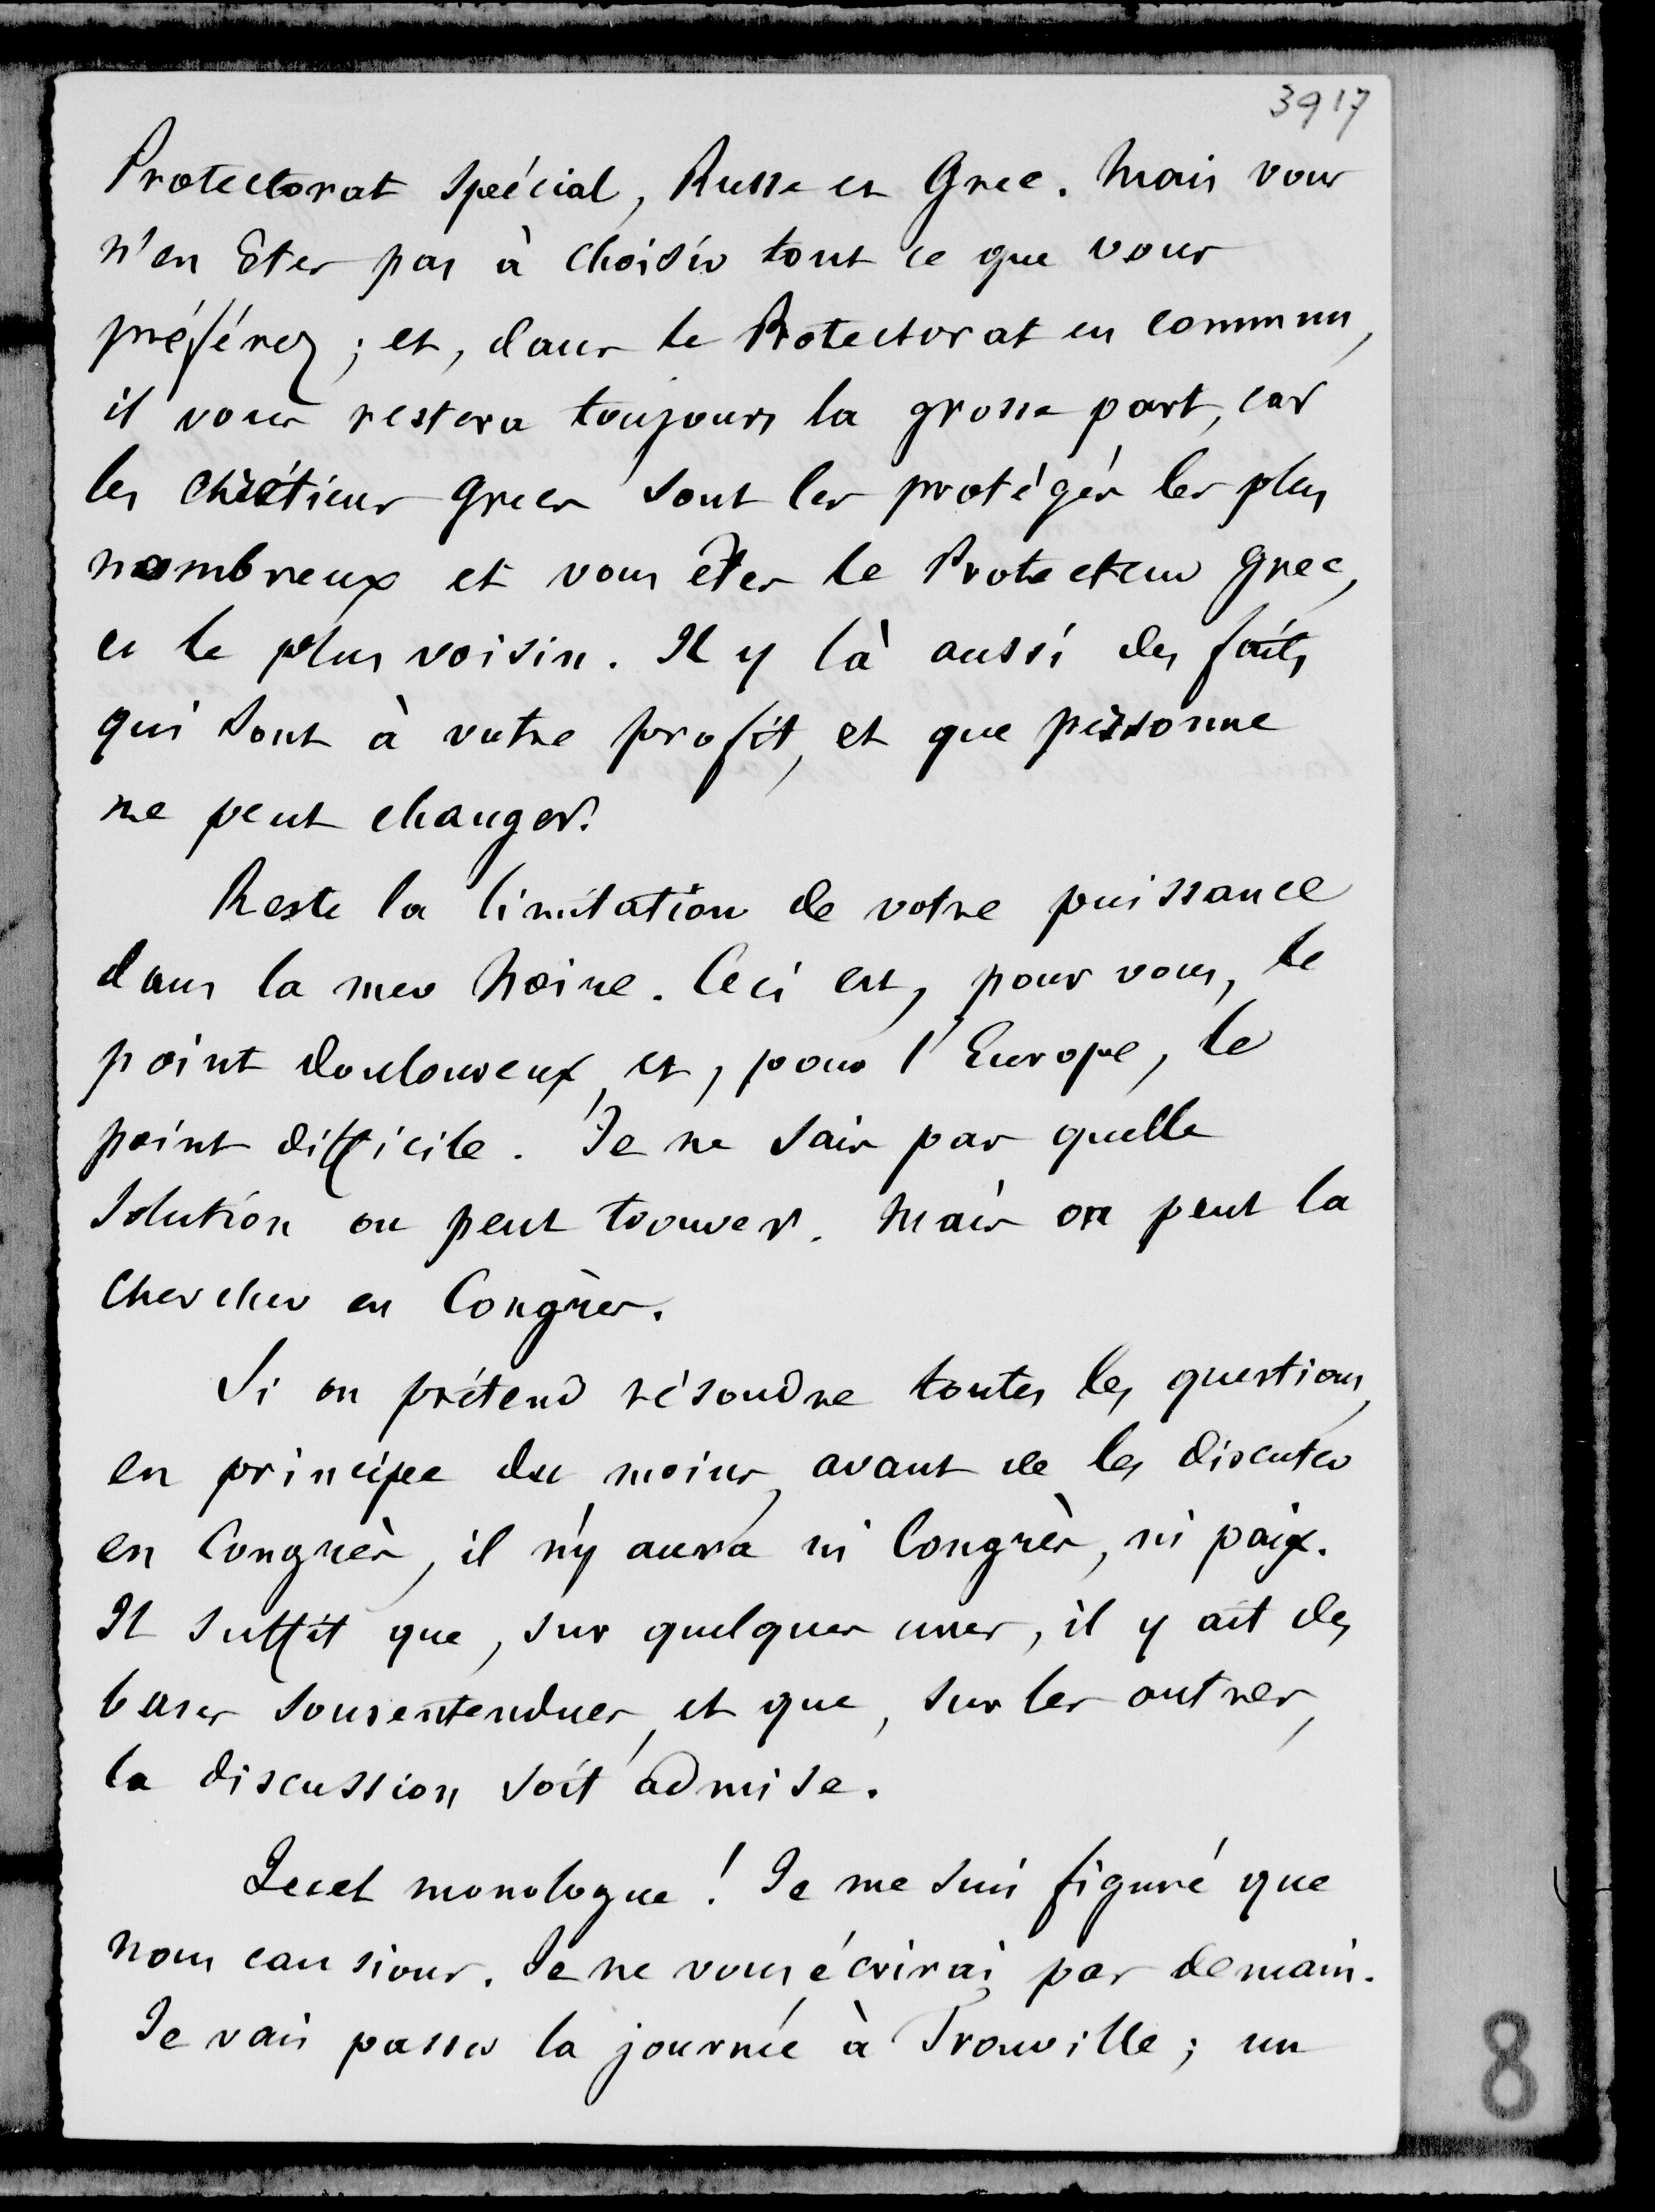 3917
Protectorat spécial, Russe et Grec. Mais vous
n'en êtes pas à choisir tout ce que vous
préférez ; et, dans le Protectorat en commun,
il vous restera toujours la grosse part, car
les chrétiens grecs sont les protégés les plus
nombreux et vous êtes le Protecteur grec,
et le plus voisin. Il y là aussi des faits
qui sont à votre profit, et que personne
ne peut changer.
Reste la limitation de votre puissance
dans la mer Noire. Ceci est, pour vous, le
point douloureux, et, pour l'Europe, le
point difficile. Je ne sais pas quelle
solution on peut trouver. Mais on peut la
chercher en Congrès.
Si on prétend résoudre toutes les questions,
en principe du moins, avant de les discuter
en Congrès, il n'y aura ni Congrès, ni paix.
Il suffit que, sur quelques unes, il y ait des
bases sousentendues, et que, sur les autres,
la discussion soit admise.
Quel monologue ! Je me suis figuré que
nous causions. Je ne vous écrirai pas demain.
Je vais passer la journée à Trouville ; un
8